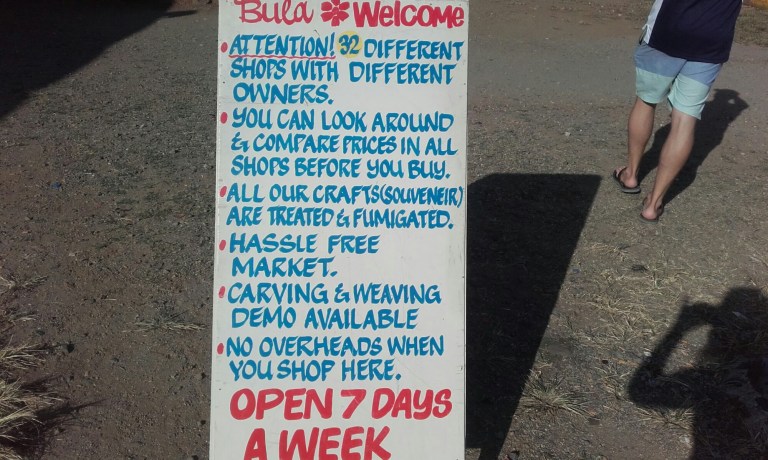 Bula Welcome
• ATTENTION! 32 DIFFERENT
SHOPS WITH DIFFERENT
OWNERS.
• YOU CAN LOOK AROUND
& COMPARE PRICES IN ALL
SHOPS BEFORE YOU BUY.
• ALL OUR CRAFTS(SOUVENEIR)
ARE TREATED & FUMIGATED.
• HASSLE FREE
MARKET.
• CARVING & WEAVING
DEMO AVAILABLE
• NO OVERHEADS WHEN
YOU SHOP HERE.
OPEN 7 DAYS
A WEEK